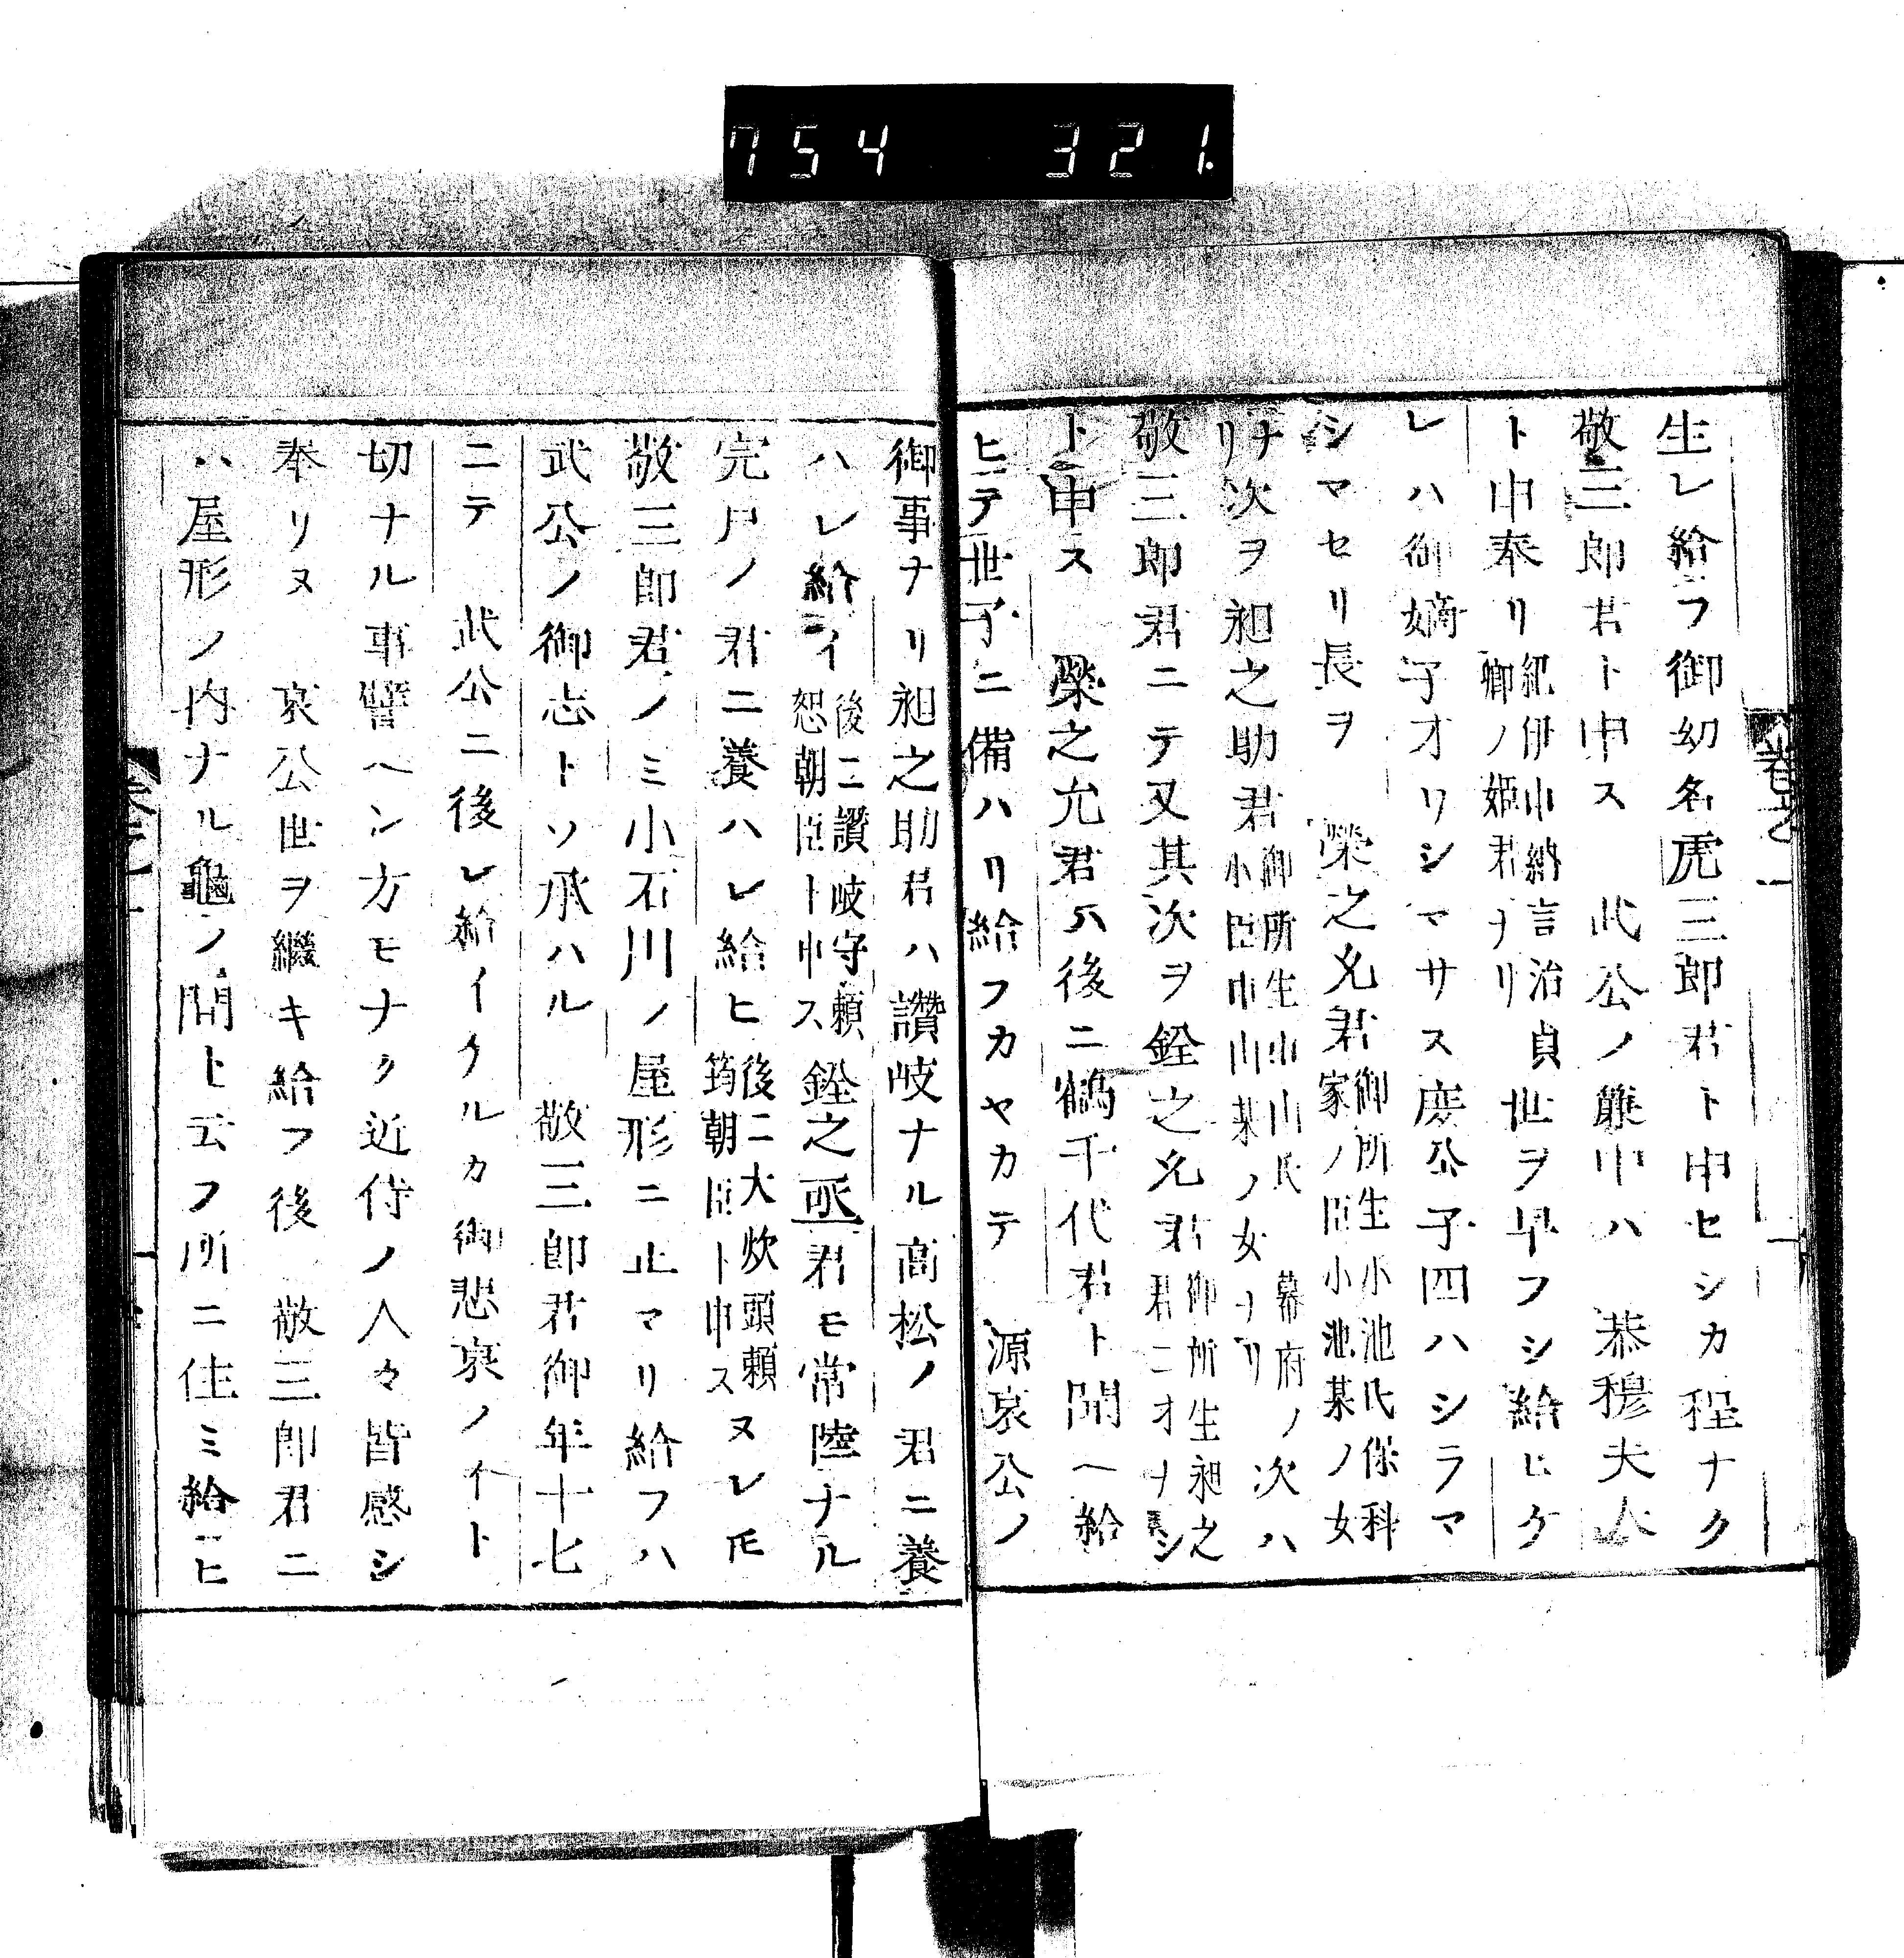 754 321.
生レ給フ御幼名虎三郎君ト申セシカ程ナク
敬三郎君ト申ス 武公ノ簾中ハ 恭穆夫人
ト申奉リ紀伊中納言治貞卿ノ姫君ヲリ世ヲ早フシ給ヒケ
レハ御嫡子オリシマサス庶公子四ハシラマ
シマセリ長ヲ 榮之允君御所生小池氏保科家ノ臣小池某ノ女
ナリ次ヲ昶之助君御所生小山氏 幕府ノ小臣中山某ノ女ヲリ次ハ
敬三郎君ニテ又其次ヲ銓之允君御所生昶之君ニオヲシ
ト申ス 榮之允君ハ後ニ鶴千代君ト聞ヘ給
ヒテ世子ニ備ハリ給フカヤカテ 源哀公ノ
御事ナリ昶之助君ハ讚岐ナル高松ノ君ニ養
ハレ給イ後ニ讚岐守頼恕朝臣ト申ス銓之丞君モ常陸ナル
完戸ノ君ニ養ハレ給ヒ後ニ大炊頭頼筠朝臣ト申スヌレ𪜈
敬三郎君ノミ小石川ノ屋形ニ止マリ給フハ
武公ノ御志トソ承ハル 敬三郎君御年十七
ニテ 武公ニ後レ給イケルカ御悲哀ノイト
切ナル事譬ヘン方モナク近侍ノ人々皆感シ
奉リヌ 哀公世ヲ繼キ給フ後 敬三郎君ニ
ハ屋形ノ内ナル龜ノ間ト云フ所ニ住ミ給ヒ